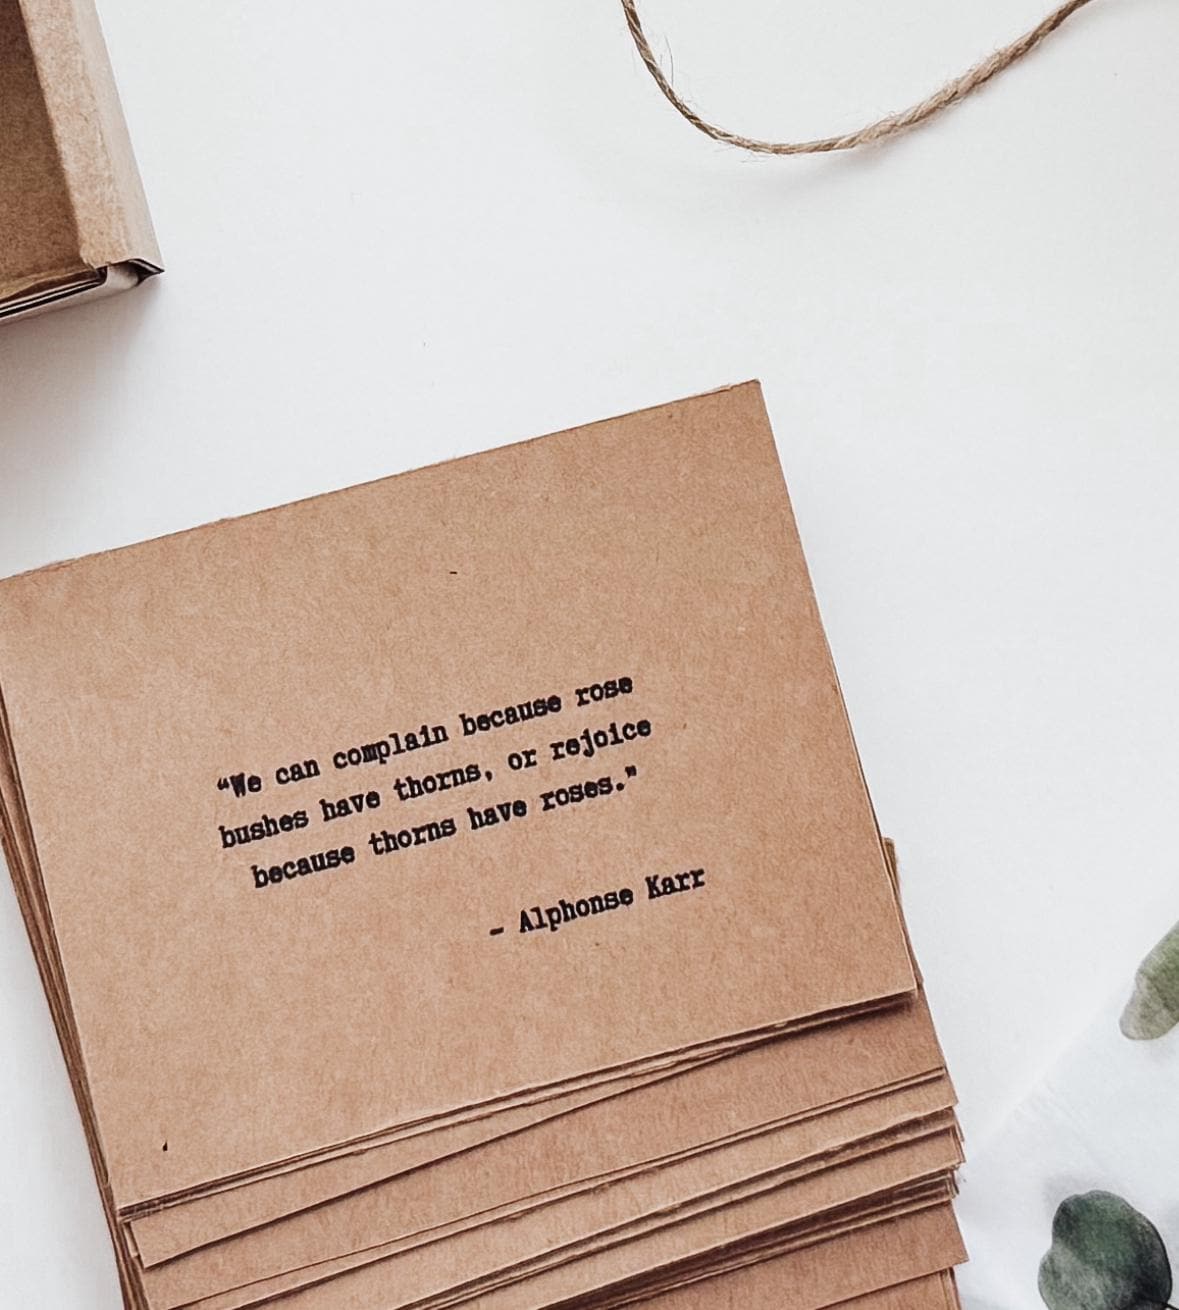 “We can complain because rose
bushes have thorns, or rejoice
because thorns have roses.”
- Alphonse Karr